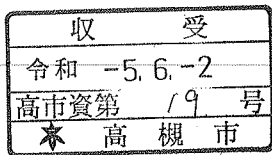 収受
令和 -5.6.-2
高市資第 19 号
高槻市